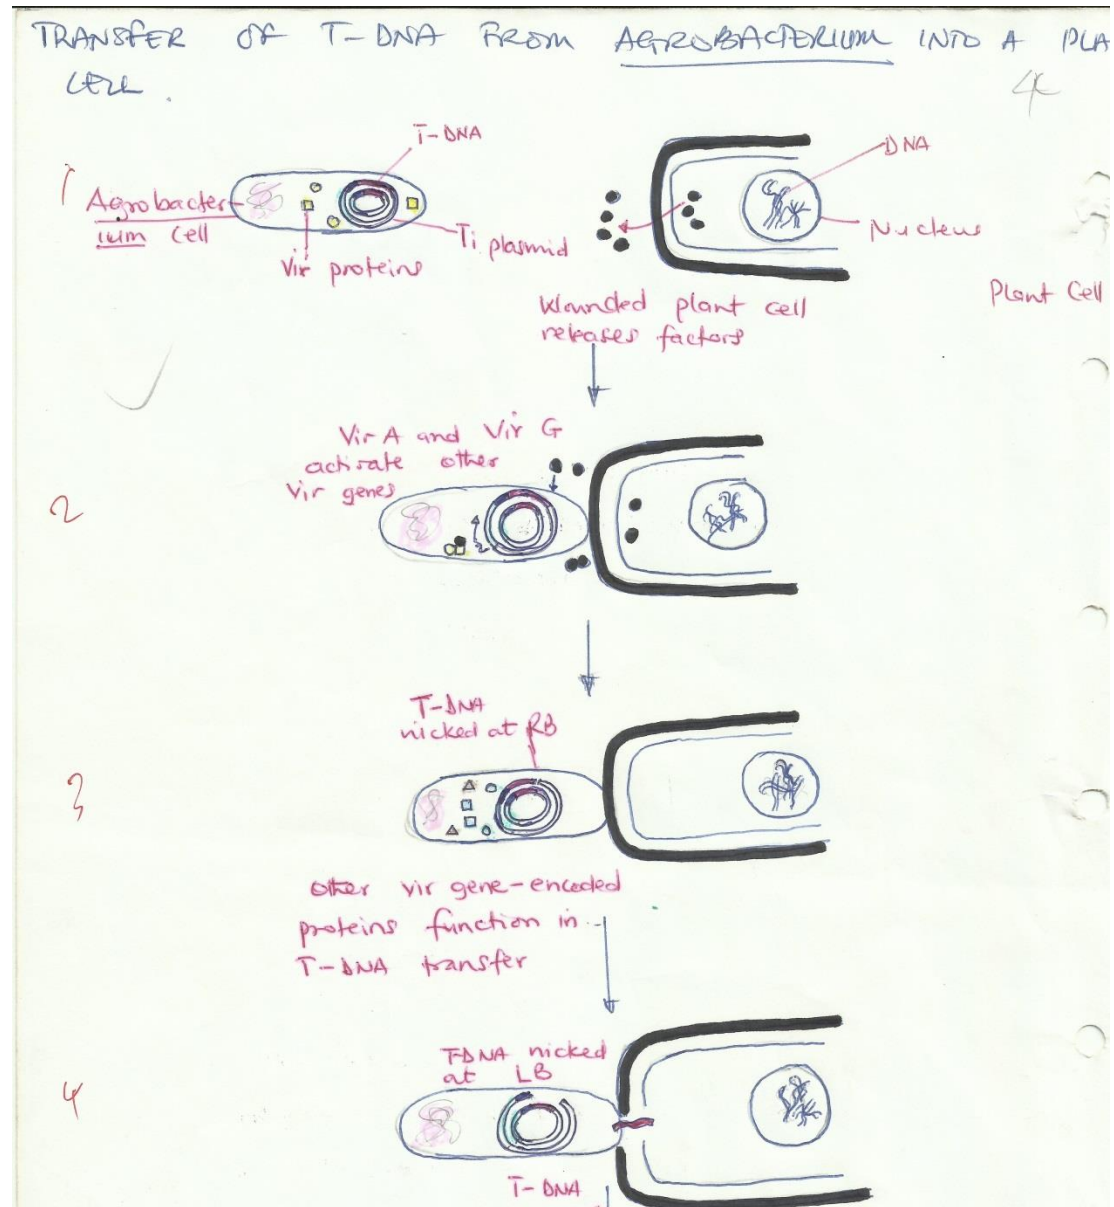 TRANSFER OF T-DNA FROM AGROBACTERIUM INTO A PLA
CELL.
4
1
T-DNA
Agrobacter-
ium cell
Vir proteins
Ti plasmid
DNA
Nucleus
Plant Cell
Wounded plant cell
releases factors
2
Vir A and Vir G
activate other
Vir genes
3
T-DNA
nicked at RB
other vir gene-encoded
proteins function in
T-DNA transfer
4
T-DNA nicked
at LB
T-DNA